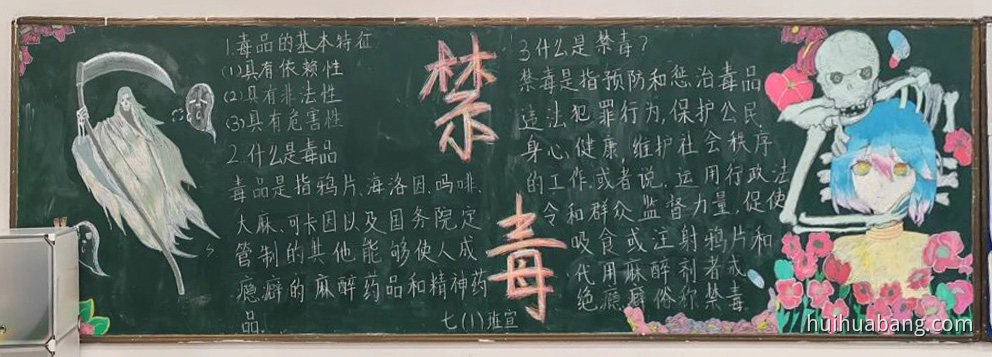 1.毒品的基本特征
(1)具有依赖性
(2)具有非法性
(3)具有危害性
2.什么是毒品
毒品是指鸦片、海洛因、吗啡、
大麻、可卡因以及国务院定
管制的其他能够使人成
瘾癖的麻醉药品和精神药
品.
禁
毒
七(1)班宣
3.什么是禁毒?
禁毒是指预防和惩治毒品
违法犯罪行为,保护公民
身心健康,维护社会秩序
的工作.或者说.运用行政法
令和群众监督力量,促使
吸食或注射鸦片和
代用麻醉剂者戒
绝瘾癖俗称禁毒
huihuabang.com